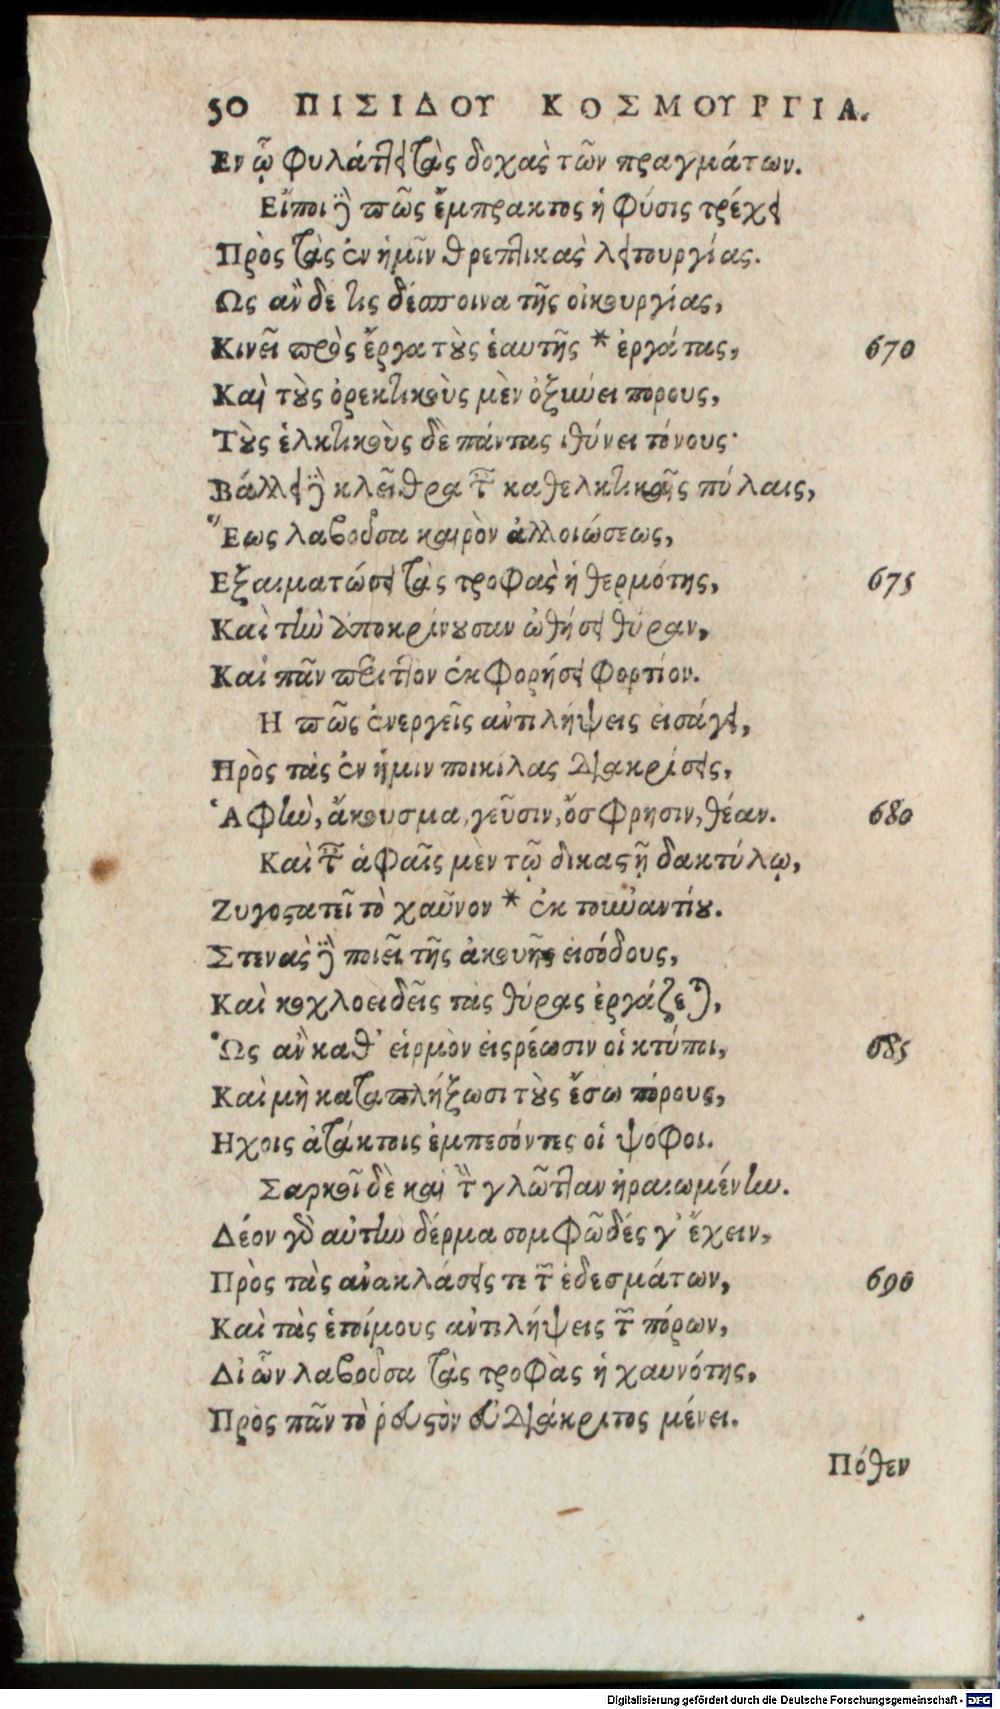 50 ΠΙΣΙΔΟΥ ΚΟΣΜΟΥΡΓΙΑ.
Εν ᾧ φυλάττει τὰς δοχὰς τῶν πραγμάτων.
Εἴποι δὲ πῶς ἔμπρακτος ἡ φύσις τρέχει
Πρὸς τὰς ἐν ἡμῖν θρεπτικὰς λειτουργίας.
Ως ἂν δέ τις δέσποινα τῆς οἰκουργίας,
Κινεῖ πρὸς ἔργα τοὺς ἑαυτῆς * ἐργάτας, 670
Καὶ τοὺς ὀρεκτικοὺς μὲν ὀξύνει πόρους,
Τοὺς ἑλκτικοὺς δὲ πάντας ἰθύνει τόνους·
Βάλλει δὲ κλεῖθρα ταῖς καθελκτικαῖς πύλαις,
Ἕως λαβοῦσα καιρὸν ἀλλοιώσεως,
Εξαιματώσει τὰς τροφὰς ἡ θερμότης, 675
Καὶ τὴν ἀποκρίνουσαν ὠθήσει θύραν,
Καὶ πᾶν περιττὸν ἐκφορήσει φορτίον.
Η πῶς ἐνεργεῖς ἀντιλήψεις εἰσάγει,
Πρὸς τὰς ἐν ἡμῖν ποικίλας διακρίσεις,
Ἁφὴν, ἄκουσμα, γεῦσιν, ὄσφρησιν, θέαν. 680
Καὶ ταῖς ἁφαῖς μὲν τῷ δικαστῇ δακτύλῳ,
Ζυγοστατεῖ τὸ χαῦνον * ἐκ τοὐναντίου.
Στενὰς δὲ ποιεῖ τῆς ἀκουῆς εἰσόδους,
Καὶ κοχλοειδεῖς τὰς θύρας ἐργάζεται,
Ὡς ἂν καθ' εἱρμὸν εἰσρέωσιν οἱ κτύποι, 685
Καὶ μὴ καταπλήξωσι τοὺς ἔσω πόρους,
Ηχοις ἀτάκτοις ἐμπεσόντες οἱ ψόφοι.
Σαρκοῖ δὲ καὶ τὴν γλῶτταν ἠραιωμένην.
Δέον γὰρ αὐτὴν δέρμα σομφῶδές γ' ἔχειν,
Πρὸς τὰς ἀνακλάσεις τε τῶν ἐδεσμάτων, 690
Καὶ τὰς ἑτοίμους ἀντιλήψεις τῶν πόρων,
Δι' ὧν λαβοῦσα τὰς τροφὰς ἡ χαυνότης,
Πρὸς πᾶν τὸ ῥευστὸν εὐδιάκριτος μένει.
Πόθεν
Digitalisierung gefördert durch die Deutsche Forschungsgemeinschaft - DFG